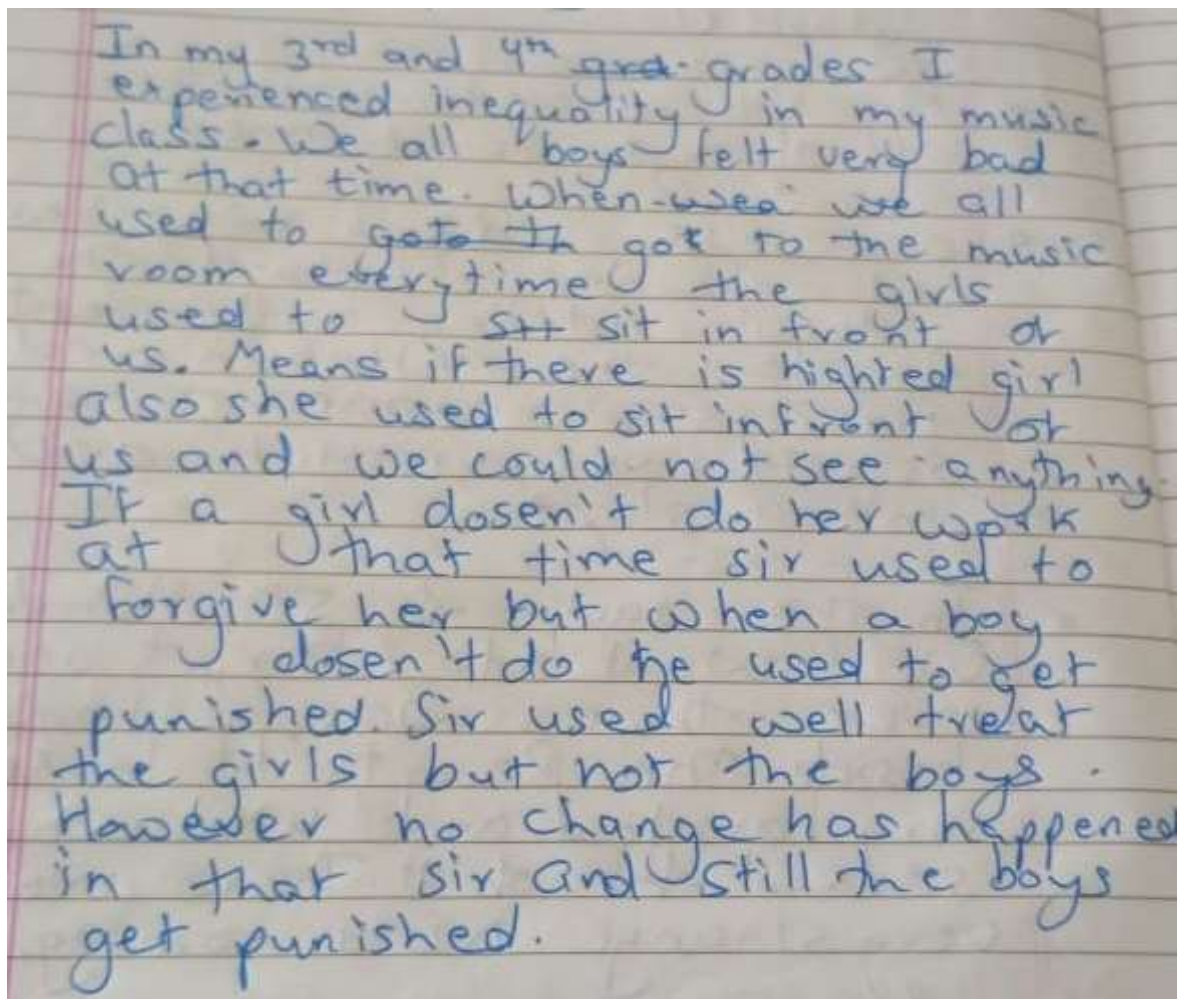 In my 3rd and 4th grd. grades I
experienced inequality in my music
class. We all boys felt very bad
at that time. When we all
used to goto th got to the music
room everytime the girls
used to sit sit in front of
us. Means if there is highted girl
also she used to sit infront of
us and we could not see anything.
If a girl dosen't do her work
at that time sir used to
forgive her but when a boy
dosen't do he used to get
punished. Sir used well treat
the girls but not the boys.
However no change has happened
in that sir and still the boys
get punished.